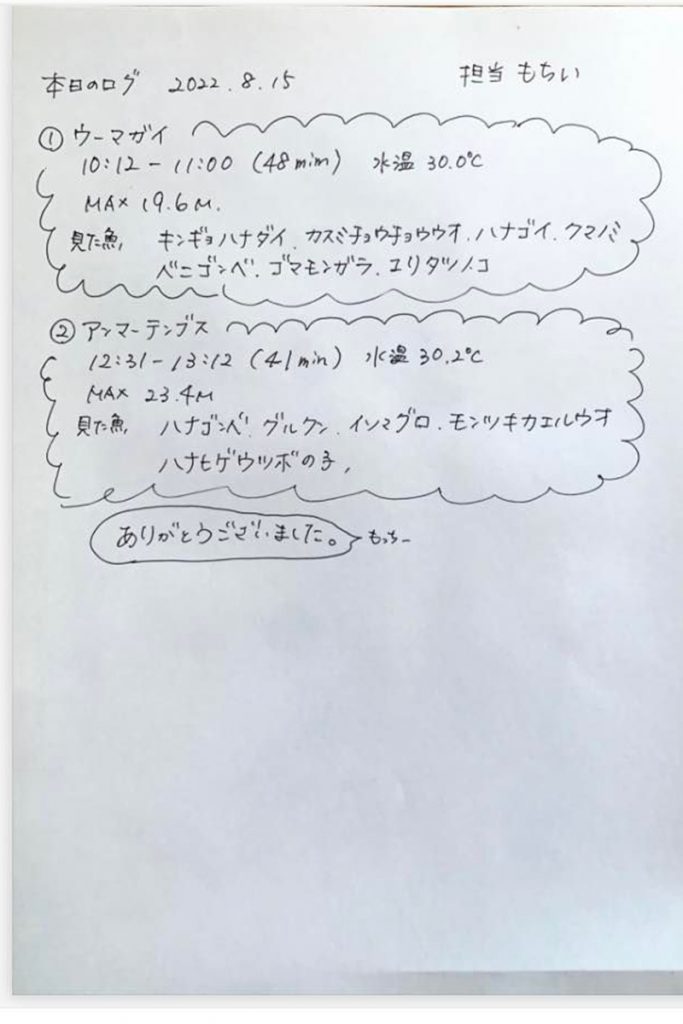 本日のログ 2022.8.15 担当 もちい
① ウーマガイ
10:12 - 11:00 (48min) 水温 30.0℃
MAX 19.6M.
見た魚, キンギョハナダイ. カスミチョウチョウウオ. ハナゴイ. クマノミ
ベニゴンベ. ゴマモンガラ. ユリタツノコ
② アンマーテングス
12:31 - 13:12 (41min) 水温 30.2℃
MAX 23.4M
見た魚, ハナゴンベ. グルクン. イソマグロ. モンツキカエルウオ
ハナヒゲウツボの子,
ありがとうございました。 もっちー